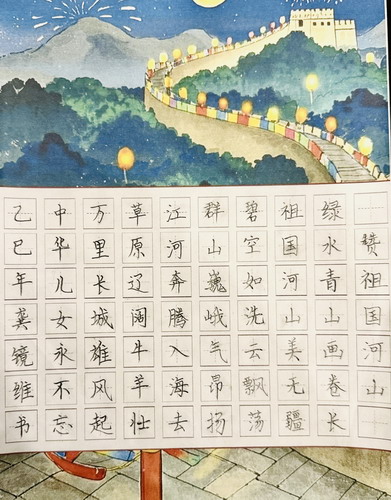 赞祖国河山
绿水青山画卷长
祖国河山美无疆
碧空如洗云飘荡
群山巍峨气昂扬
江河奔腾入海去
草原辽阔牛羊壮
万里长城雄风起
中华儿女永不忘
乙巳年龚镜维书